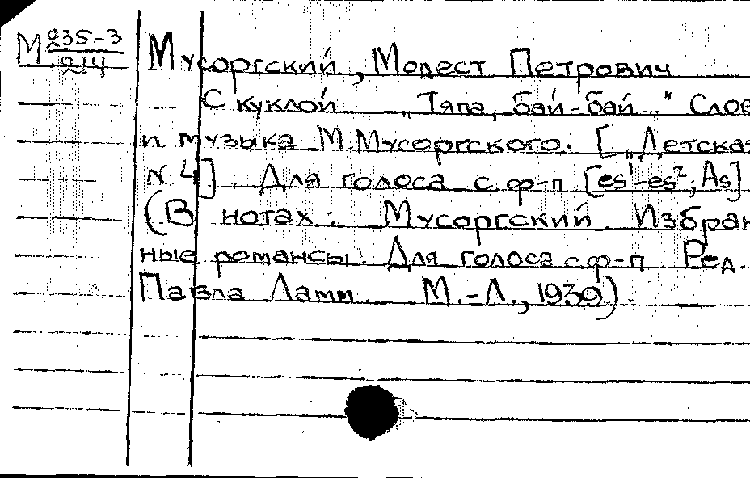 М 935-3
214
Мусоргский, Модест Петрович
С куклой "Тяпа, бай-бай" Слов
и музыка М.Мусоргского. [„Детская
N 4] Для голоса с ф-п [es¹-es², As]
(В нотах: Мусоргский. Избран
ные романсы Для голоса с ф-п Ред.
Павла Ламм М.-Л., 1939)